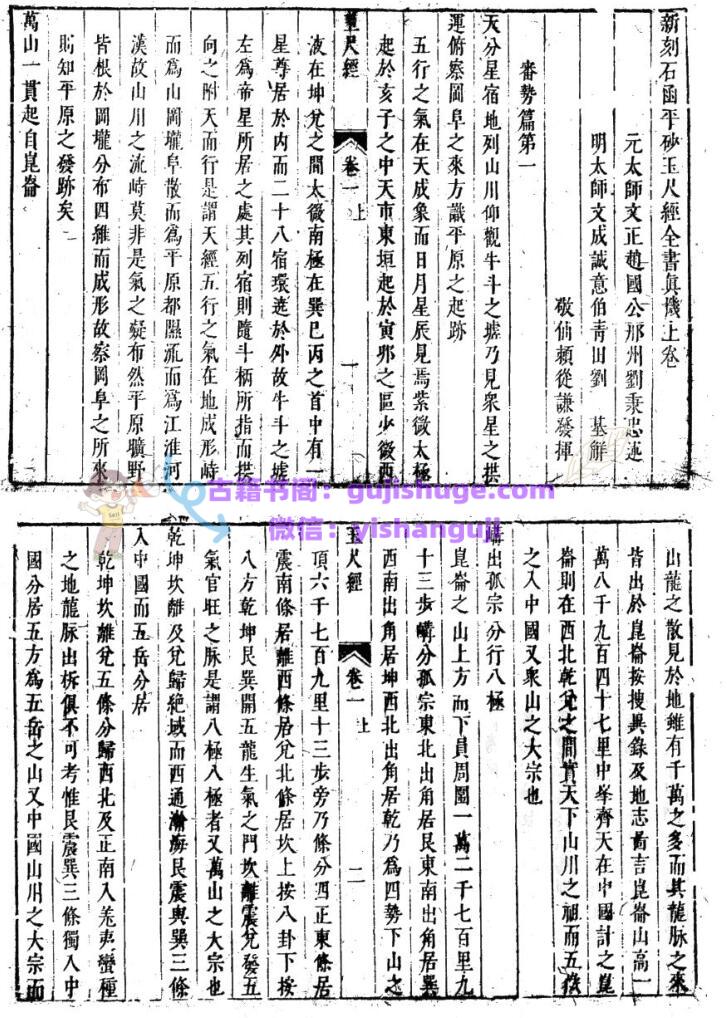 新刻石函平砂玉尺經全書眞機上卷
元太師文正趙國公邢州劉秉忠述
明太師文成誠意伯青田劉 基解
敬仙賴從謙發揮
審勢篇第一
天分星宿地列山川仰觀牛斗之墟乃見衆星之拱
運俯察岡阜之來方識平原之起跡
五行之氣在天成象而日月星辰見焉紫微太極
起於亥子之中天市東垣起於寅卯之區少微西
玉尺經 卷一上 一
液在坤兌之間太微南極在巽巳丙之首中有一
星尊居於内而二十八宿環遶於外故牛斗之墟
左爲帝星所居之處其列宿則隨斗柄所指而拱
向之附天而行是謂天經五行之氣在地成形峙
而爲山岡壠阜散而爲平原都隰流而爲江淮河
漢故山川之流峙莫非是氣之凝布然平原曠野
皆根於岡壠分布四維而成形故察岡阜之所來
則知平原之發跡矣
萬山一貫起自崑崙
古籍书阁：gujishuge.com
微信：yishanguji
山龍之散見於地雖有千萬之多而其龍脉之來
皆出於崑崙按搜異錄及地志啚言崑崙山高一
萬八千九百四十七里中峯齊天在中國計之崑
崙則在西北乾兌之間實天下山川之祖而五條
之入中國又衆山之大宗也
嶙出孤宗分行八極
崑崙之山上方而下員周圍一萬二千七百里九
十三步嶙分孤宗東北出角居艮東南出角居巽
西南出角居坤西北出角居乾乃爲四勢下山之
玉尺經 卷一上 二
頂六千七百九里十三步旁乃條分四正東條居
震南條居離西條居兌北條居坎上按八卦下按
八方乾坤艮巽開五龍生氣之門坎離震兌發五
氣官旺之脉是謂八極八極者又萬山之大宗也
乾坤坎離及兌歸絶域而西通瀚海艮震與巽三條
入中國而五岳分居
乾坤坎離兌五條分歸西北及正南入羌夷蠻種
之地龍脉出柝俱不可考惟艮震巽三條獨入中
國分居五方爲五岳之山又中國山川之大宗而